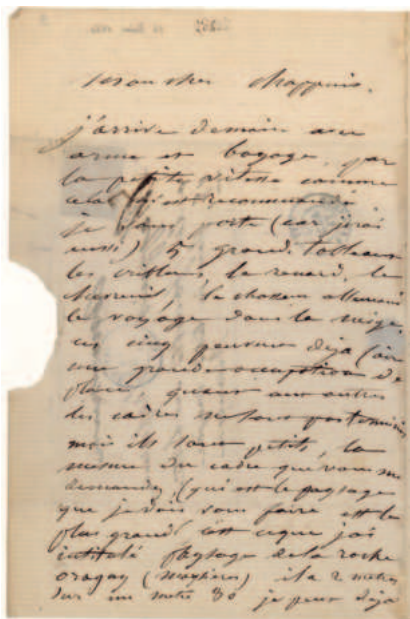 mon cher Chappuis.
j'arrive demain avec
arme et bagage, par
la petite vitesse comme
cela m'est recommandé
je vous porte (car j'irai
aussi) 5 grands tableaux
les cribleuses, le renard, le
chevreuil, le chasseur allemand
le voyage dans la neige
ces cinq peuvent déjà faire
une grande occupation de
place, quant aux autres
les cadres ne sont pas terminés
mais ils sont petits, la
mesure du cadre que vous me
demandez (qui est le paysage
que je dois vous faire est le
plus grand c'est ce que j'ai
intitulé paysage de la roche
oragay (mezières) il a 2 metres
sur un metre 30 je peux déja